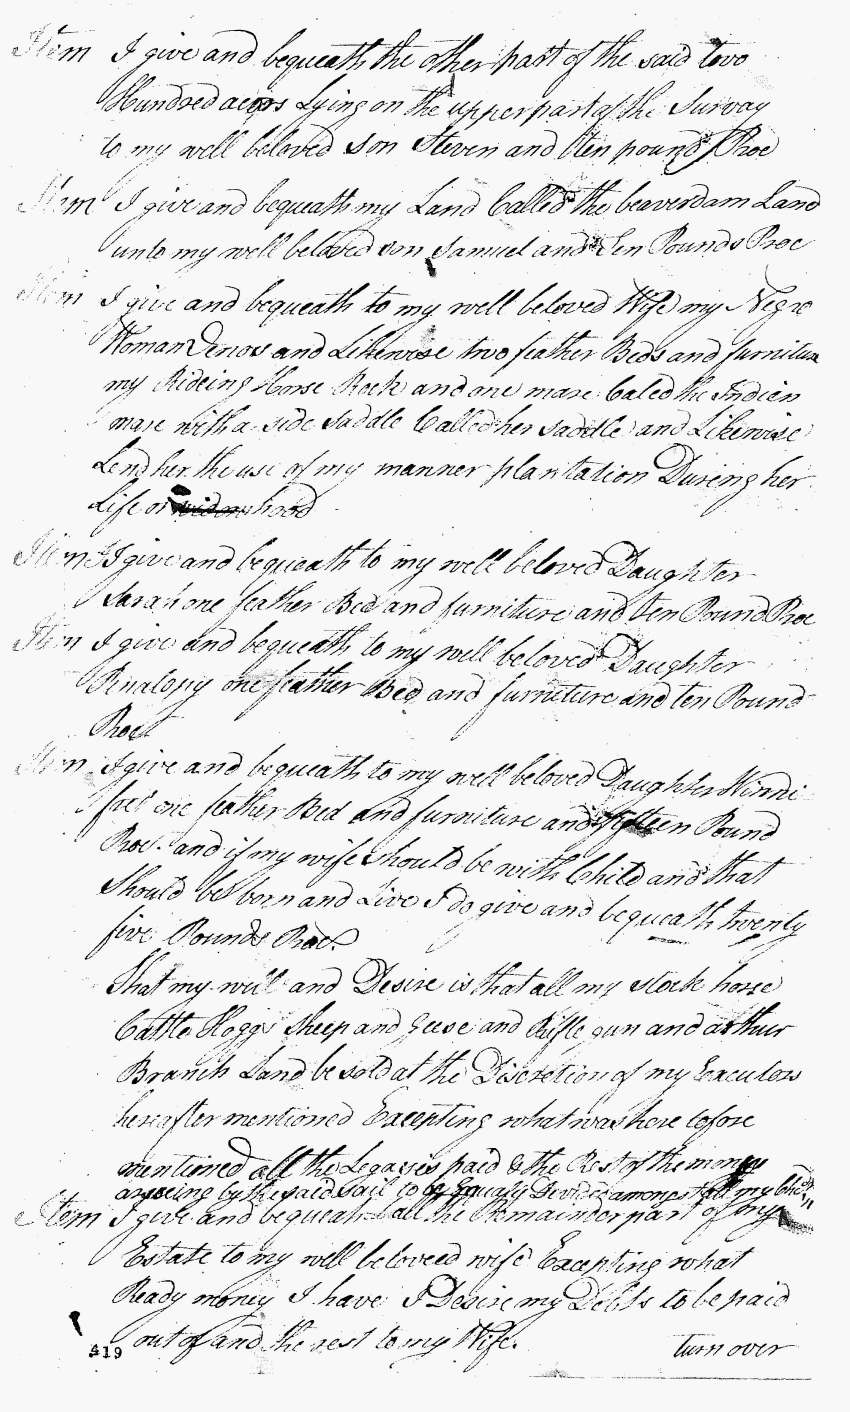 Item I give and bequeath the other part of the said two
Hundred acors Lying on the upper part of the Survay
to my well beloved Son Steven and ten pound Proc
Item I give and bequeath my Land Called the beaverdam Land
unto my well beloved son Samuel and Ten Pounds Proc
Item I give and bequeath to my well beloved Wife my Negro
Woman and Likewise two feather Beds and furniture
my Rideing Horse Rock and one mare Caled the Indien
mare with a side Saddle Called her saddle and Likewise
Lend her the use of my manner plantation During her
Life or widowhood
Item I give and bequeath to my well beloved Daughter
Sarah one feather Bed and furniture and ten Pound Proc
Item I give and bequeath to my well beloved Daughter
Penalopy one feather Bed and furniture and ten Pound
Proct
Item I give and bequeath to my well beloved Daughter Winni
fret one feather Bed and furniture and fifteen Pound
Proc. and if my wife should be with Child and that
Should be born and Live I do give and bequeath twenty
five Pounds Proc.
That my will and Desire is that all my stock horse
Cattle Hoggs Sheep and Geese and Rifle gun and arthur
Branch Land be sold at the Discretion of my Executors
hereafter mentioned Excepting what was here tofore
mentioned all the Legasies paid & the Rest of the money
arising by the said sail to be Equaly Devided amongst all my Children
Item I give and bequeath all the Remainder part of my
Estate to my well beloveed wife Excepting what
Ready money I have I Desire my Debts to be paid
out of and the rest to my Wife.
419 turn over